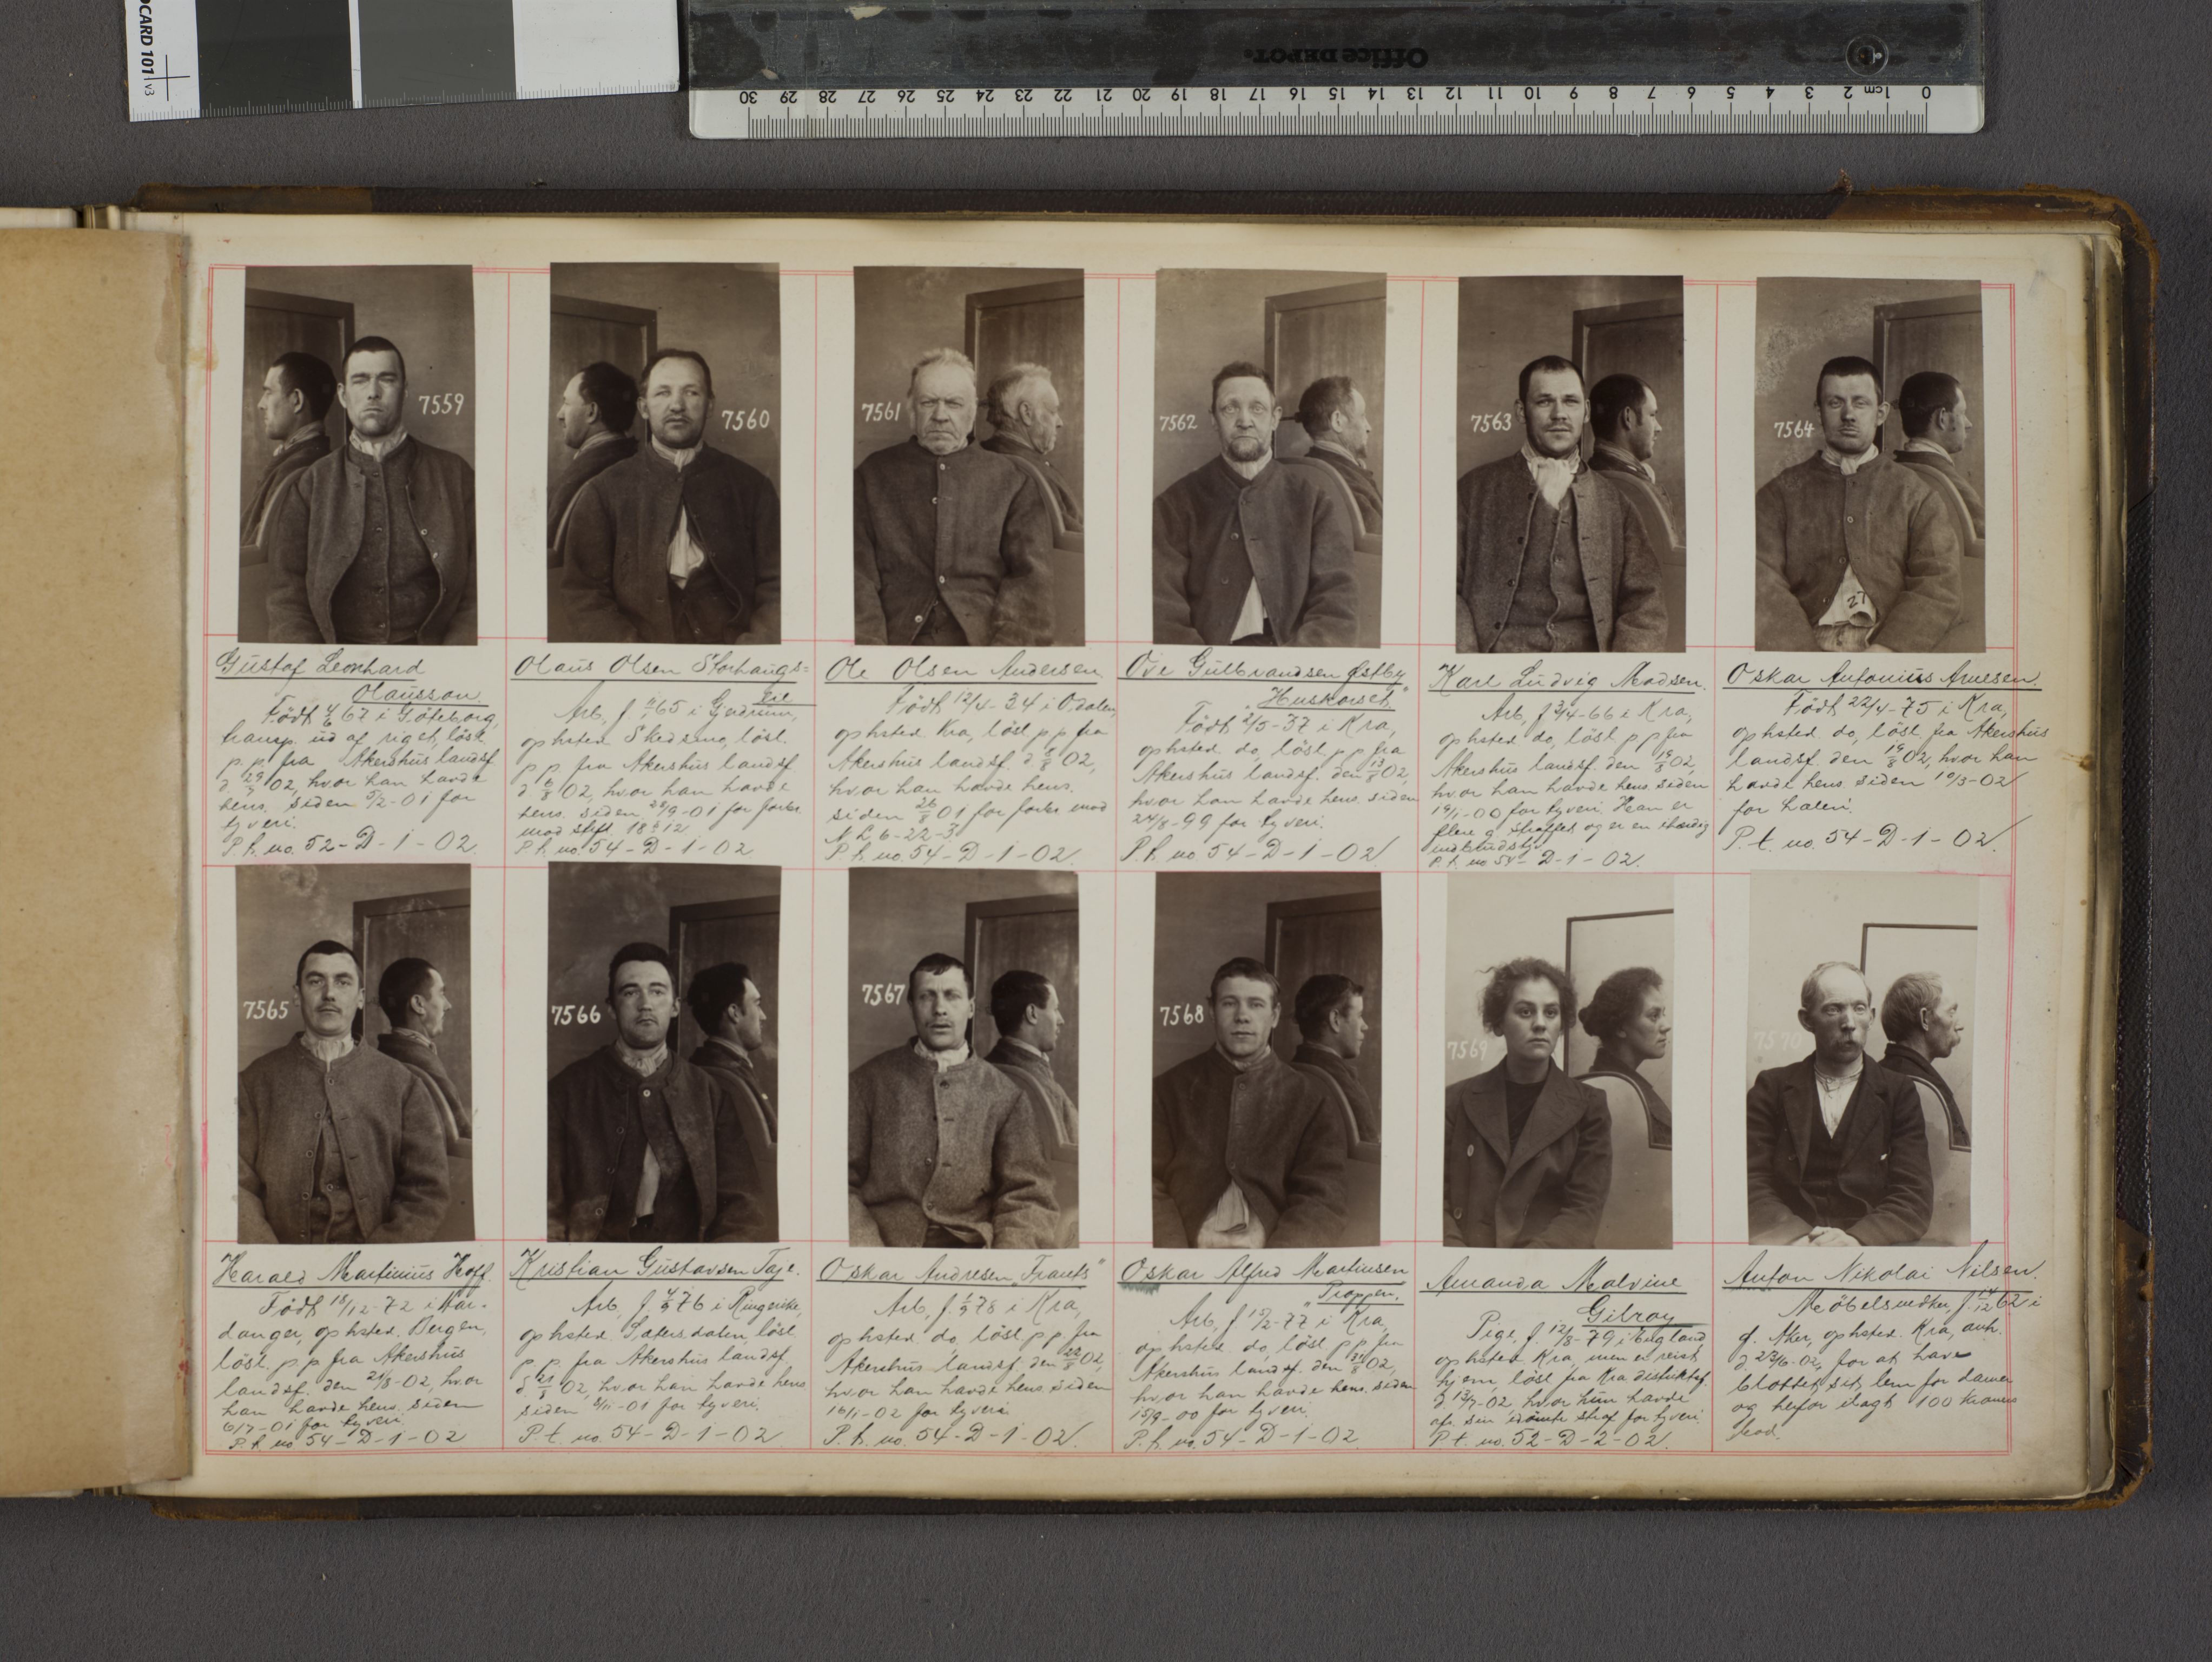 OCARD 101 v3
Office DEPOT.
0 1cm 2 3 4 5 6 7 8 9 10 11 12 13 14 15 16 17 18 19 20 21 22 23 24 25 26 27 28 29 30
7559
Gustaf Leonhard
Olausson.
Födt 4/6 67 i Göteborg,
transp. ud af riget, löst.
p. p. fra Akershus landsf.
d. 29/7 02, hvor han havde
hens. siden 5/2-01 for
tyveri.
P. t. no. 52-D-1-02
7560
Olaus Olsen Storhaugs=
eie
Arb, f. 65 i Gjerdrum,
ophsted Skedsmo, löst.
p. p. fra Akershus landsf.
d 6/8 02, hvor han havde
hens. siden 28/9-01 for forbr.
mod stfl. 18 12
P. t. no. 54-D-1-02
7561
Ole Olsen Andersen.
Födt 12/4-34 i Odalen,
ophsted. Kra, löst p p fra
Akershus landsf. d. 8/8 02,
hvor han havde hens.
siden 26/8 01 for forbr mod
N L 6-22-3
P. t. no. 54-D-1-02.
7562
Ove Gulbrandsen Østby
"Huskorset"
Födt 2/5-37 i Kra,
ophsted. do, löst p p fra
Akershus landsf. den 13/8 02,
hvor han havde hens. siden
24/8-99 for tyveri.
P. t. no. 54-D-1-02
7563
Karl Ludvig Madsen.
Arb, f 3/4-66 i Kra,
ophsted do, löst p p fra
Akershus landsf. den 19/8 02,
hvor han havde hens siden
19/1-00 for tyveri. Han er
flere g. straffet og er en ihærdig
indbrudstyv
P. t. no 54-D-1-02.
7564
27
Oskar Antonius Arnesen.
Födt 22/4-75 i Kra,
ophsted. do, löst. fra Akershus
landsf. den 19/8 02, hvor han
havde hens. siden 10/3-02
for hæleri.
P. t. no. 54-D-1-02.
7565
Harald Martinius Hoff.
Födt 18/12-72 i Har-
danger, ophsted. Bergen,
löst. p. p. fra Akershus
landsf. den 21/8-02, hvor
han havde hens. siden
6/7-01 for tyveri.
P. t. no 54-D-1-02
7566
Kristian Gustavsen Taje.
Arb, f. 4/9 76 i Ringerike,
ophsted. Sætersdalen, löst
p. p. fra Akershus landsf.
d 21/8 02, hvor han havde hens.
siden 8/11-01 for tyveri.
P. t. no. 54-D-1-02
7567
Oskar Andresen "Frants"
Arb, f. 1/9 78 i Kra,
ophsted. do, löst p p. fra
Akershus landsf. den 22/8 02,
hvor han havde hens. siden
16/1-02 for tyveri
P. t. no. 54-D-1-02.
7568
Oskar Alfred Martinsen
"Proppen.
Arb, f 15/2-77 i Kra,
ophsted do, löst p p fra
Akershus landsf. den 31/8 02,
hvor han havde hens. siden
15/9-00 for tyveri.
P. t. no. 54-D-1-02
7569
Amanda Malvine
Gilroy
Pige, f. 12/8-79 i England,
ophsted Kra, men er reist
hjem, löst fra Kra distriktsf.
d. 13/7-02, hvor hun havde
afs. sin idömte straf for tyveri.
P t. no. 52-D-2-02.
7570
Anton Nikolai Nilsen.
Möbelsnedker, f. 14/12 62 i
Aker, ophsted. Kra, anh.
d. 23/6-02, for at have
blottet sit lem for damer
og herfor ilagt 100 Kroners
bod.